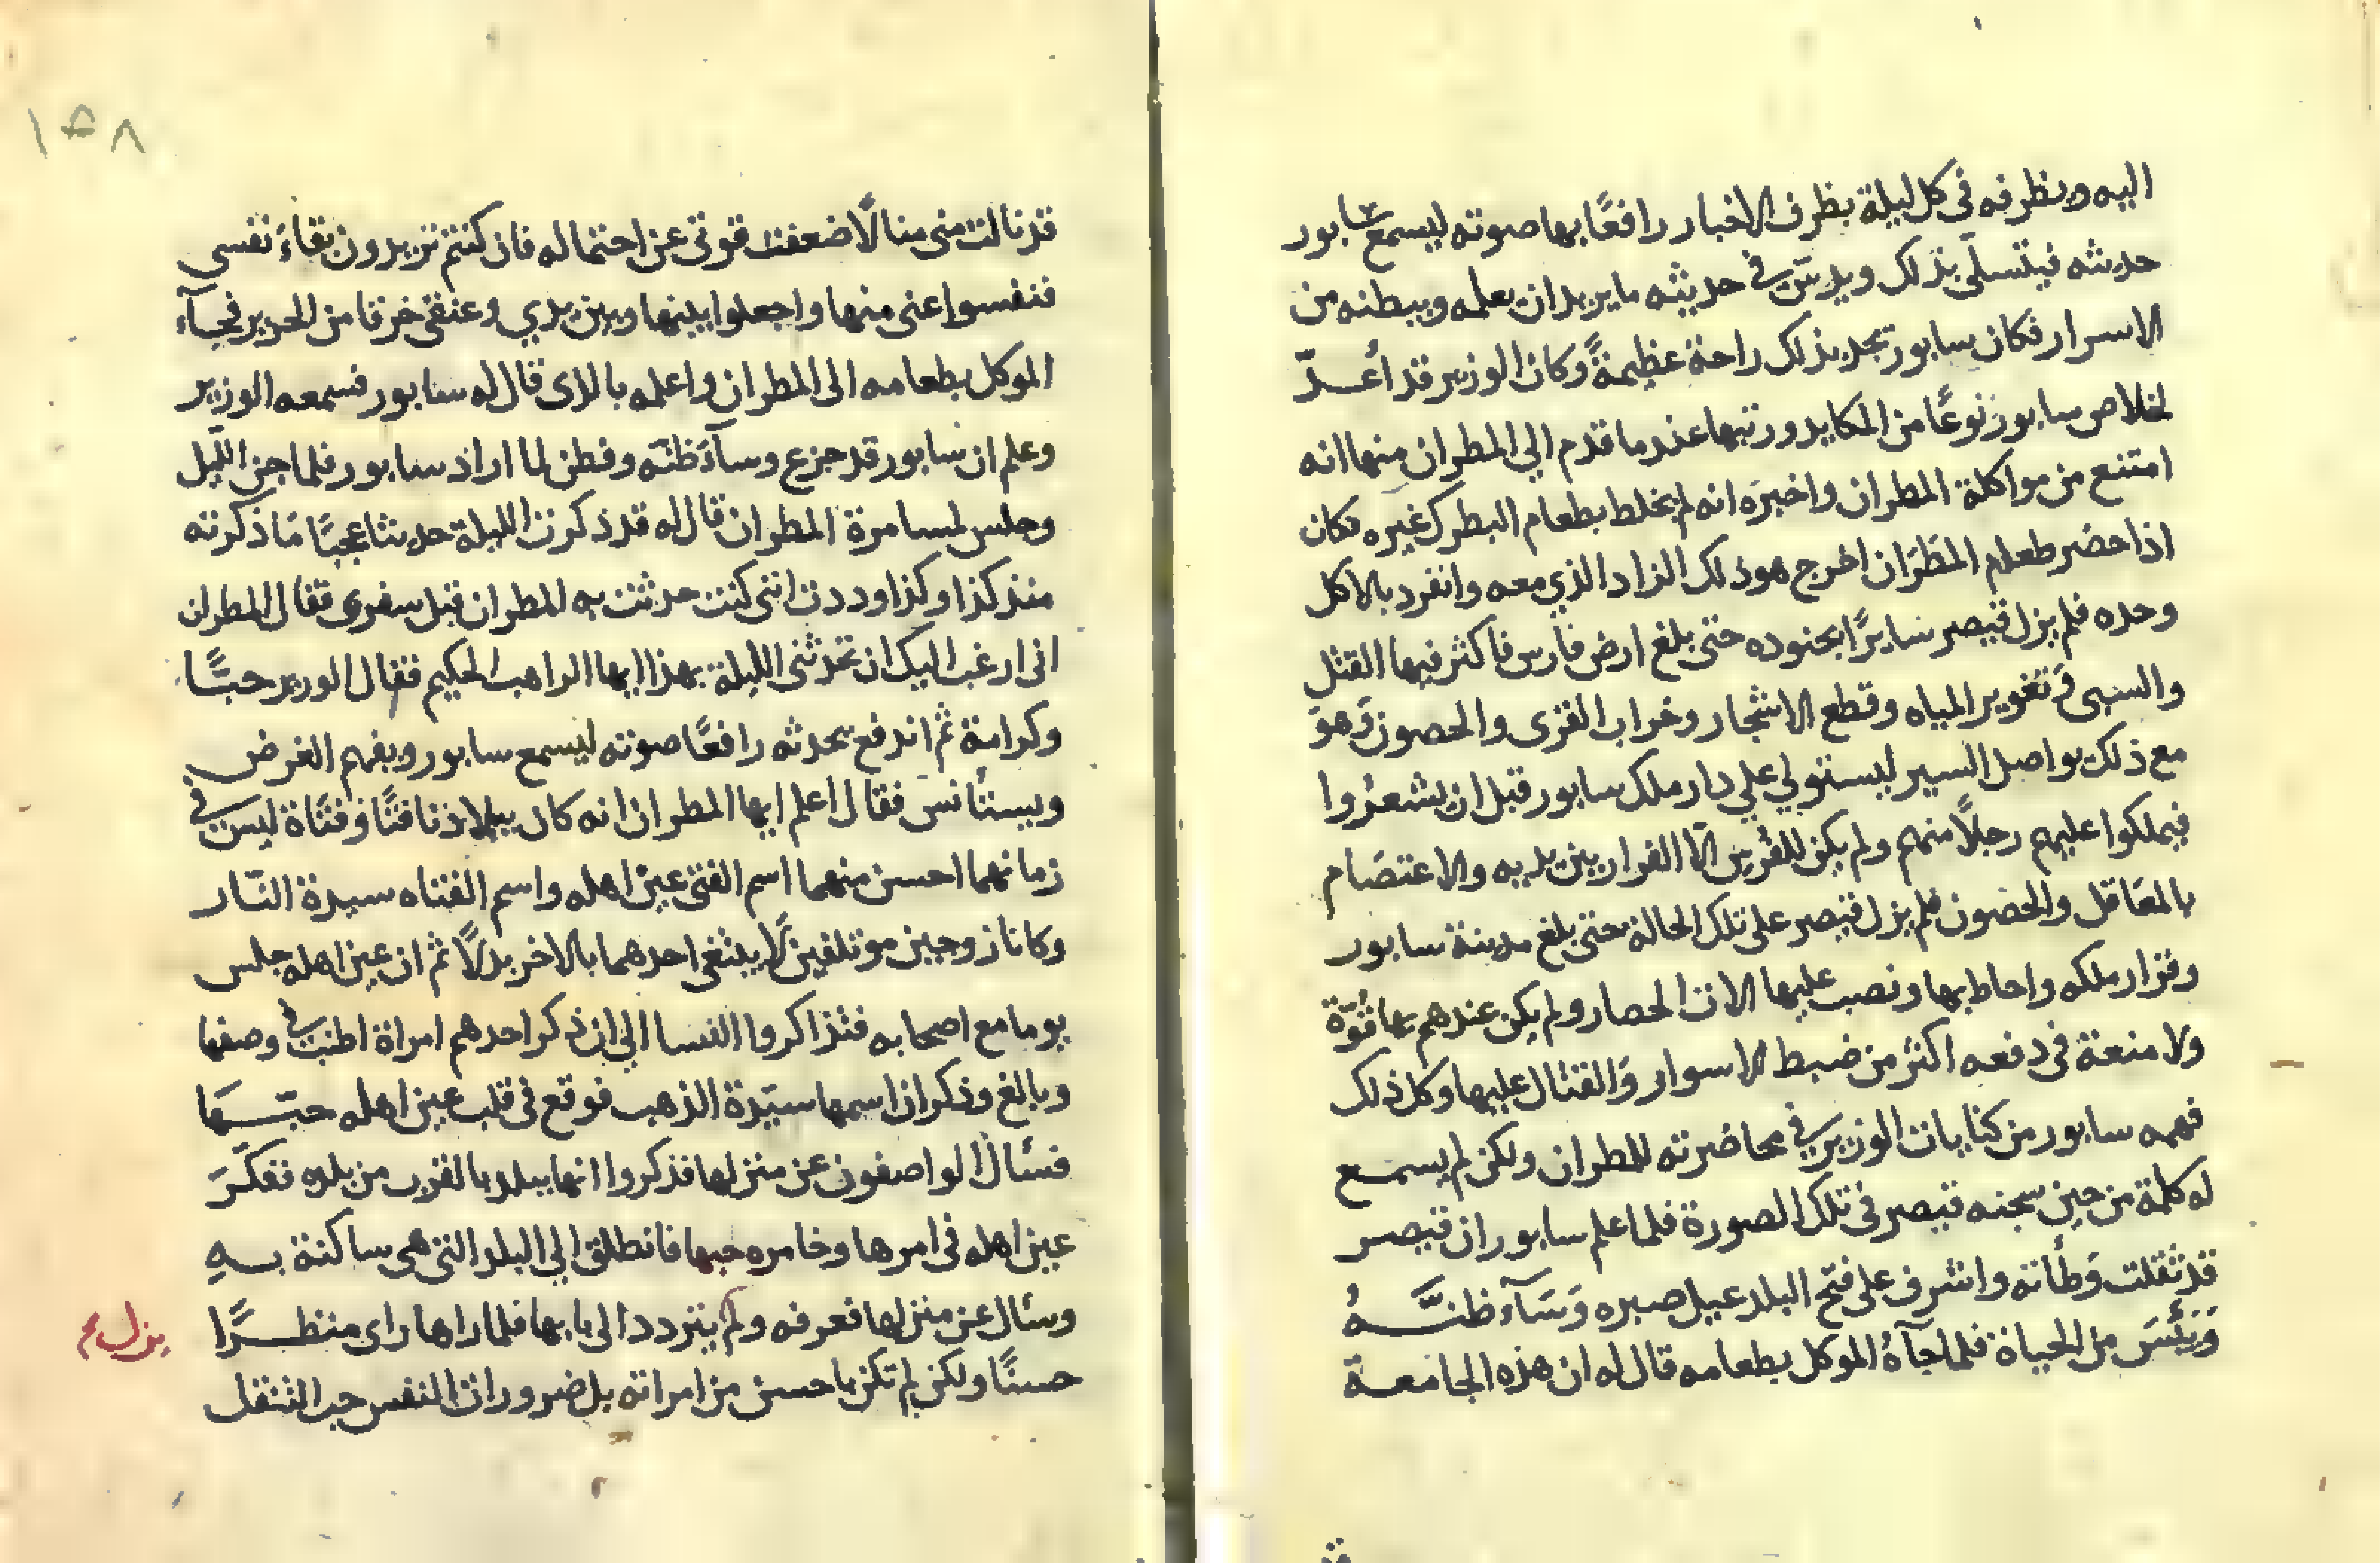 اليه ويطرفه في كل ليلة بطرف الاخبار رافعًا بها صوته ليسمع سابور
حديثه فيتسلّى بذلك ويدسّ في حديثه ما يريد ان يعلمه ويبطنه من
الاسرار فكان سابور يجد بذلك راحة عظيمةً وكان الوزير قد أعـدّ
لخلاص سابور نوعًا من المكايد ورتبها عند ما قدم الي المطران منها انه
امتنع من مواكلة المطران واخبره انه لم يخلط بطعام البطرك غيره فكان
اذا حضر طعام المطران اخرج هو ذلك الزاد الذي معه وانفرد بالاكل
وحده فلم يزل قيصر سايرًا بجنوده حتى بلغ ارض فارس فاكثر فيها القتل
والسبى وتغوير المياه وقطع الاشجار وخراب القرى والحصون وهو
مع ذلك يواصل السير ليستولي علي دار ملك سابور قبل ان يشعروا
فيملكوا عليهم رجلاً منهم ولم يكن للفرس الّا الفرار بين يديه والاعتصام
بالمعاقل والحصون فلم يزل قيصر على تلك الحالة حتى بلغ مدينة سابور
وقرار ملكه واحاط بها ونصب عليها الات الحصار ولم يكن عندهم بها قوّة
ولا منعة في دفعه اكثر من ضبط الاسوار والقتال عليها وكل ذلك
فهمه سابور من كنايات الوزير في محاضرته للمطران ولكن لم يسمع
له كلمة من حين سجنه قيصر في تلك الصورة فلما علم سابور ان قيصر
قد ثقلت وطأته واشرف على فتح البلد عيل صبره وسآء ظنـهُ
ويئس من الحياة فلما جآءهُ الموكل بطعامه قال له ان هذه الجامعة
قد
١٥٨
قد نالت منى منالًا ضعفت قوتى عن احتماله فان كنتم تريدون بقاء نفسى
فنفسوا عنى منها واجعلوا بينها وبين يدي وعنقى خرقا من الحرير فجآء
الموكل بطعامه الى المطران واعلمه بالذى قال له سابور فسمعه الوزير
وعلم ان سابور قد جزع وسآء ظنّه وفطن لما اراد سابور فلما جن الليل
وجلس لمسامرة المطران قال له قد ذكرت الليلة حديثا عجبًا ما ذكرته
منذ كذا وكذا وددت اننى كنت حدثت به المطران قبل سفرى فقال المطران
انى ارغب اليك ان تحدثنى الليلة بهذا ايها الراهب الحكيم فقال الوزير حبًّا
وكرامة ثم اندفع يحدثه رافعًا صوته ليسمع سابور ويفهم الغرض
ويستأنس فقال اعلم ايها المطران انه كان ببلادنا فتًا وفتاة ليس في
زمانهما احسن منهما اسم الفتى عين اهله واسم الفتاه سيدة النّار
وكانا زوجين موتلفين لا يبتغى احدهما بالاخر بدلًا ثم ان عين اهله جلس
يوما مع اصحابه فتذاكروا النسا الي ان ذكر احدهم امراة اطنب في وصفها
وبالغ وذكر ان اسمها سيّدة الذهب فوقع في قلب عين اهله حبّـها
فسئال الواصفون عن منزلها فذكروا انها ببلد بالقرب من بلده تفكّـرَ
عين اهله في امرها وخامره حبها فانطلق الي البلد التى هى ساكنة بـهِ
وسئال عن منزلها فعرفه ولم يتردد الى بابها فلما راها راى منظـرًا
يزل ع
حسنًا ولكن لم تكن باحسن من امراته بل ضرورات النفس حب التنقل